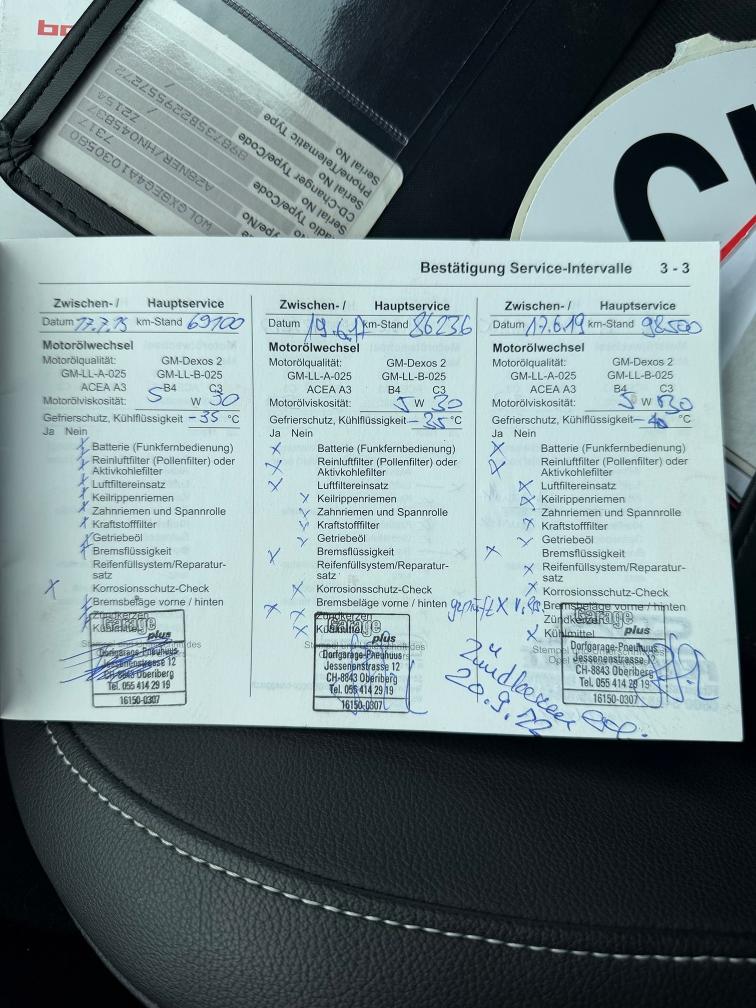 Radio Type/Code
Serial No
CD-Changer Type/Code
Serial No
Phone/Telematic Type
Serial No
W0LGXBEG4A1030580
7317
A28NER/HN045837
72154
CH
Bestätigung Service-Intervalle 3 - 3
Zwischen- / Hauptservice
Datum 17.7.15 km-Stand 69100
Motorölwechsel
Motorölqualität: GM-Dexos 2
GM-LL-A-025 GM-LL-B-025
ACEA A3 B4 C3
Motorölviskosität: 5 W 30
Gefrierschutz, Kühlflüssigkeit -35 °C
Ja Nein
Batterie (Funkfernbedienung)
Reinluftfilter (Pollenfilter) oder
Aktivkohlefilter
Luftfiltereinsatz
Keilrippenriemen
Zahnriemen und Spannrolle
Kraftstofffilter
Getriebeöl
Bremsflüssigkeit
Reifenfüllsystem/Reparatur-
satz
Korrosionsschutz-Check
Bremsbeläge vorne / hinten
Zündkerzen
Kühlmittel
Garage
plus
Dorfgarage-Pneuhuus
Jessenenstrasse 12
CH-8843 Oberiberg
Tel. 055 414 29 19
16150-0307
Zwischen- / Hauptservice
Datum 19.6.17 km-Stand 86236
Motorölwechsel
Motorölqualität: GM-Dexos 2
GM-LL-A-025 GM-LL-B-025
ACEA A3 B4 C3
Motorölviskosität: 5 W 30
Gefrierschutz, Kühlflüssigkeit -35 °C
Ja Nein
Batterie (Funkfernbedienung)
Reinluftfilter (Pollenfilter) oder
Aktivkohlefilter
Luftfiltereinsatz
Keilrippenriemen
Zahnriemen und Spannrolle
Kraftstofffilter
Getriebeöl
Bremsflüssigkeit
Reifenfüllsystem/Reparatur-
satz
Korrosionsschutz-Check
Bremsbeläge vorne / hinten
Zündkerzen
Kühlmittel
Garage
plus
Dorfgarage-Pneuhuus
Jessenenstrasse 12
CH-8843 Oberiberg
Tel. 055 414 29 19
16150-0307
Zwischen- / Hauptservice
Datum 17.6.19 km-Stand 98500
Motorölwechsel
Motorölqualität: GM-Dexos 2
GM-LL-A-025 GM-LL-B-025
ACEA A3 B4 C3
Motorölviskosität: 5 W 30
Gefrierschutz, Kühlflüssigkeit -40 °C
Ja Nein
Batterie (Funkfernbedienung)
Reinluftfilter (Pollenfilter) oder
Aktivkohlefilter
Luftfiltereinsatz
Keilrippenriemen
Zahnriemen und Spannrolle
Kraftstofffilter
Getriebeöl
Bremsflüssigkeit
Reifenfüllsystem/Reparatur-
satz
Korrosionsschutz-Check
geprüft Bremsbeläge vorne / hinten
Zündkerzen
Kühlmittel
Garage
plus
Dorfgarage-Pneuhuus
Jessenenstrasse
CH-8843 Oberiberg
Tel. 055 414 29 19
16150-0307
Zündkerzen
20.9.22